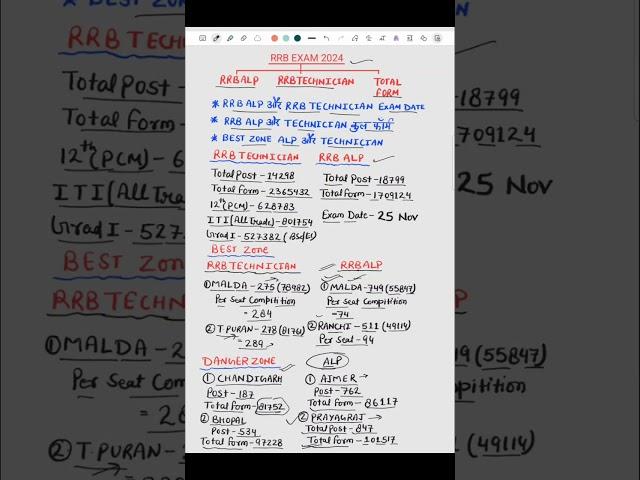 RRB EXAM 2024
RRB ALP RRB TECHNICIAN TOTAL FORM
* RRB ALP और RRB TECHNICIAN EXAM DATE
* RRB ALP और TECHNICIAN कुल फॉर्म
* BEST ZONE ALP और TECHNICIAN
RRB TECHNICIAN
Total Post - 14298
Total form - 2365432
12th (PCM) - 628783
ITI (All Trade) - 801754
Grad I - 527382 (BSc/ES)
RRB ALP
Total Post - 18799
Total form - 1709124
Exam Date - 25 Nov
BEST ZONE
RRB TECHNICIAN
① MALDA - 275 (78982)
Per Seat Compitition
= 284
② T.PURAN - 278 (81761)
= 289
RRB ALP
① MALDA - 749 (55847)
Per Seat Compitition
- 74
② RANCHI - 511 (49114)
Per Seat - 94
DANGER ZONE
① CHANDIGARH
Post - 187
Total form - 81752
② BHOPAL
Post - 534
Total form - 97228
ALP
① AJMER →
Post - 762
Total form - 86117
② PRAYAGRAJ →
Total Post - 847
Total form - 101517